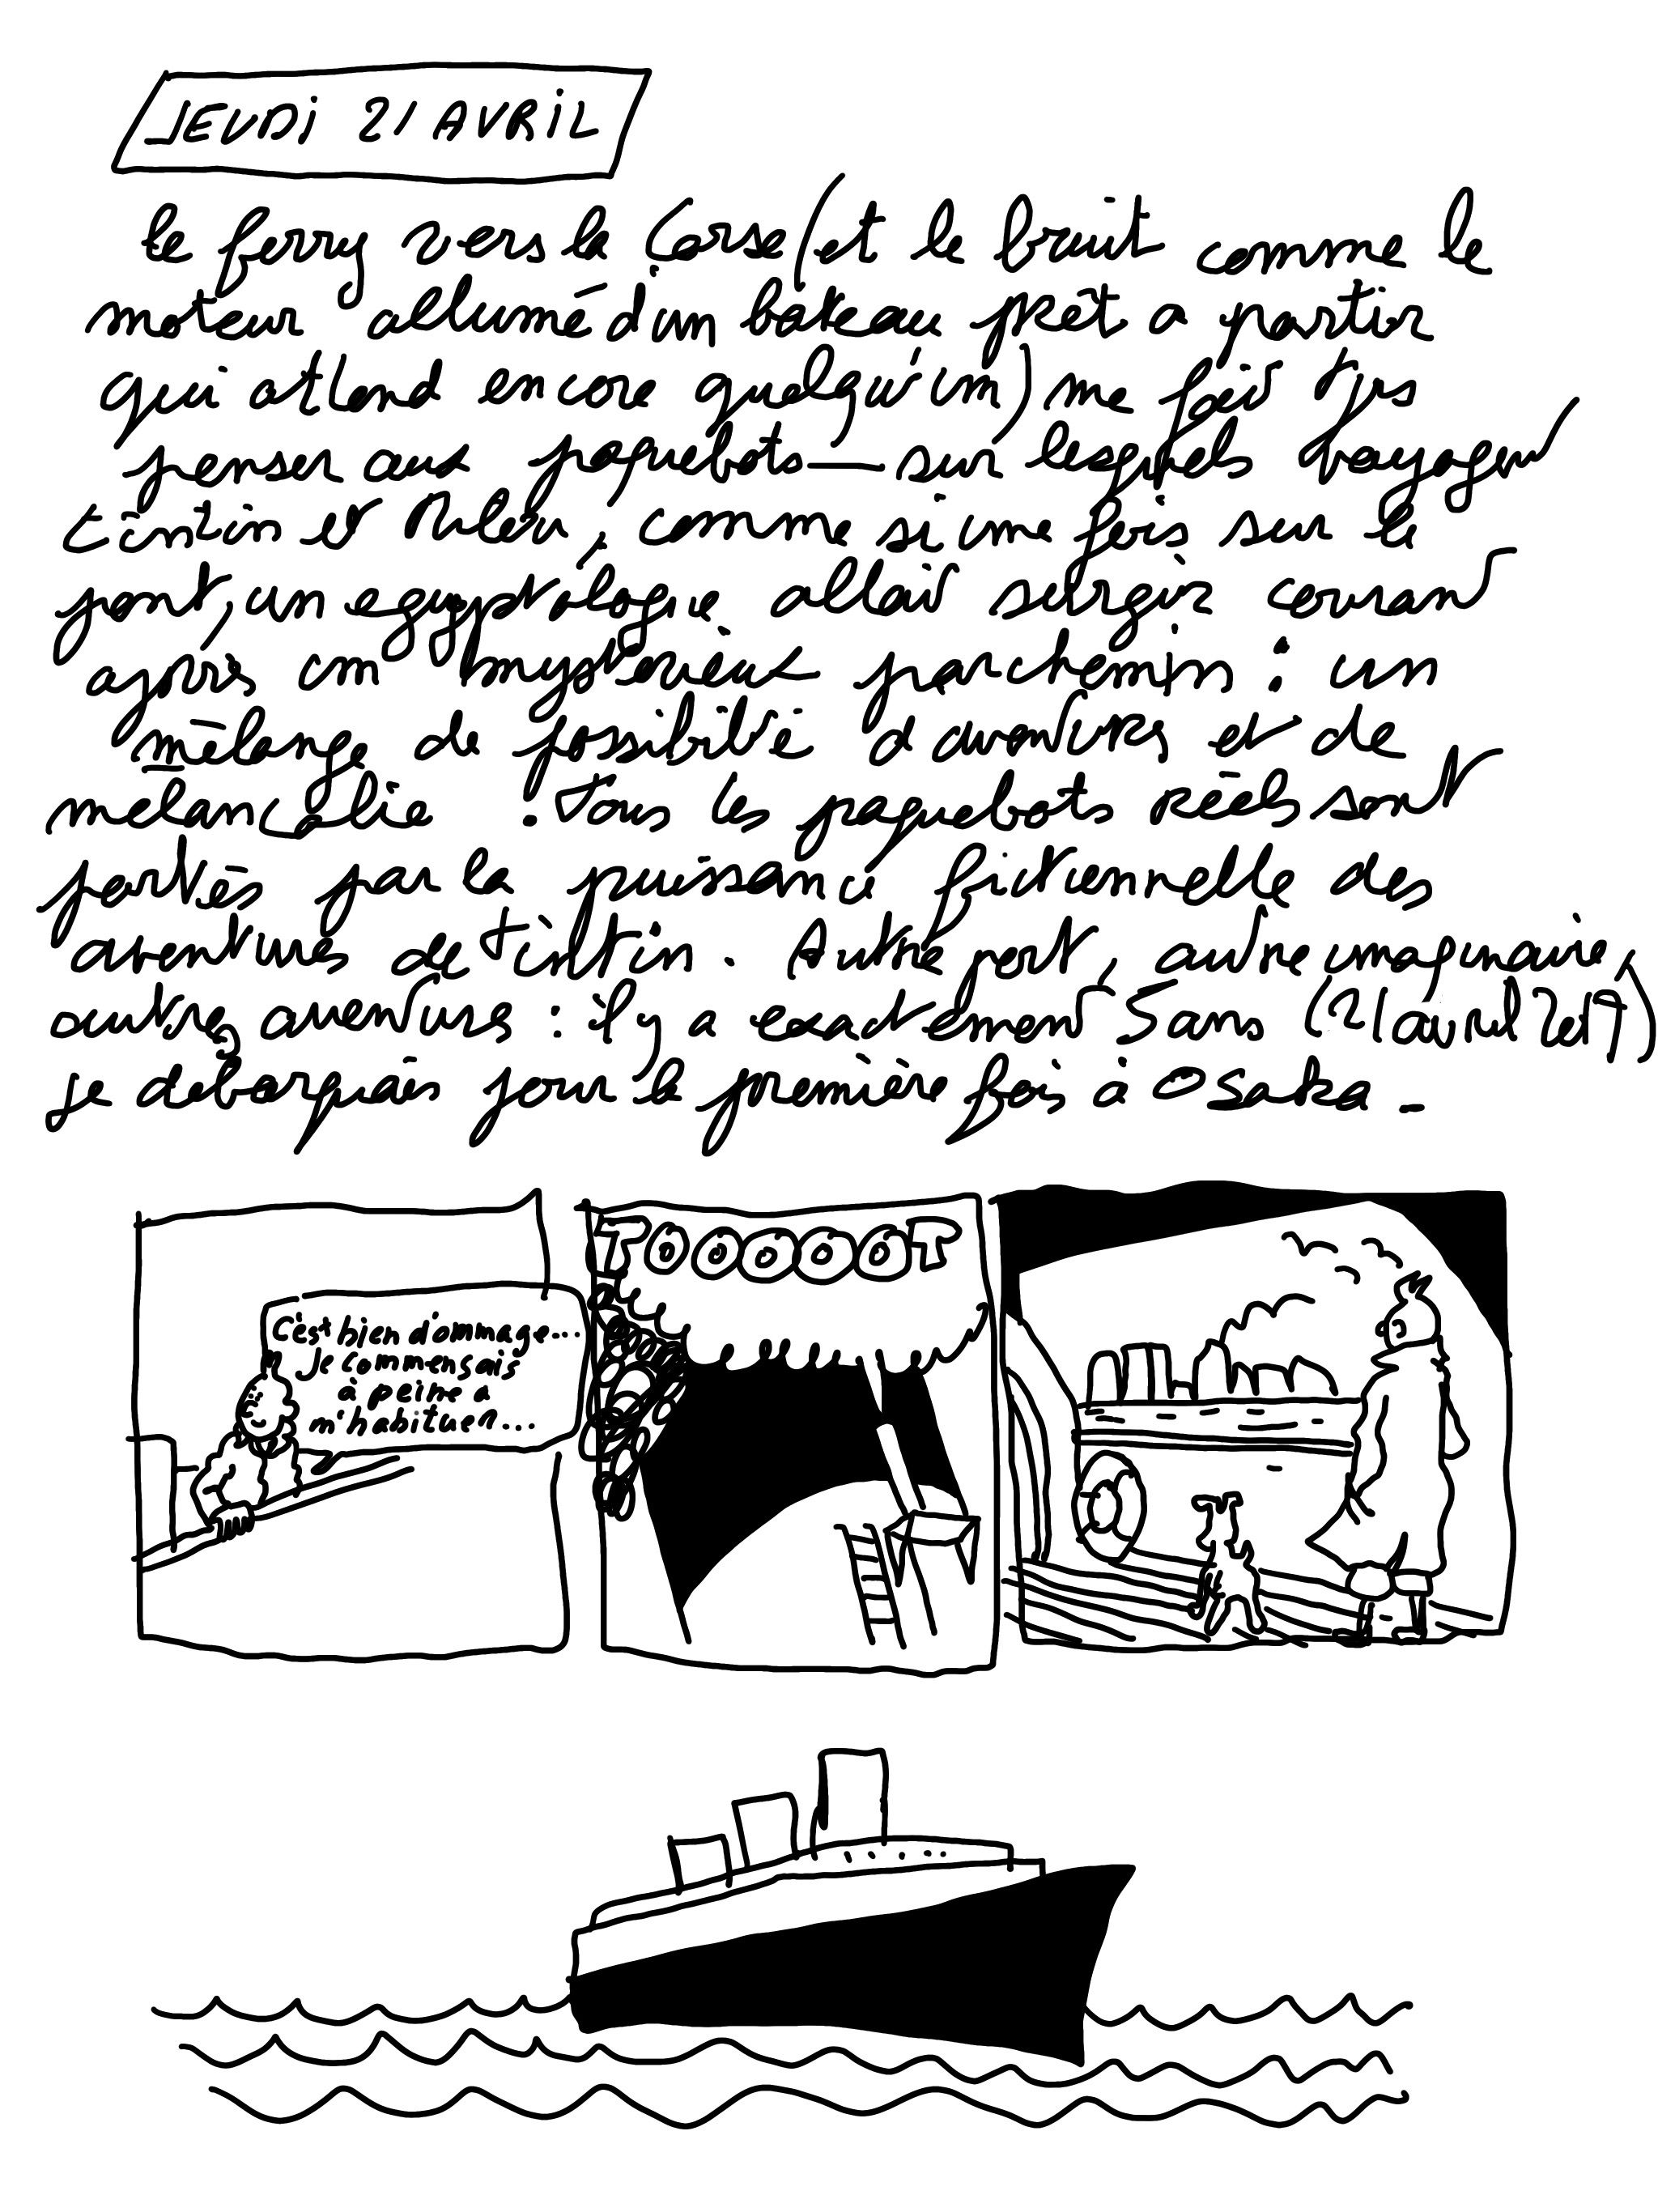 JEUDi 21 AVRiL
le ferry vers la Corse (et le bruit comme le
moteur allumé d'un bateau prêt a partir
qui attend encore quelqu'un) me fait tjrs
penser aux paquebots — sur lesquels voyagent
tintin et Milou, comme si une fois sur le
pont, un egyptologue allait surgir courant
après un mystérieux parchemin : un
mélange de possibilité d'aventures et de
mélancolie ! Tous les paquebots réels sont
portés par la puissance fictionnelle des
aventures de tintin. Autre port, autre imaginaire,
autre aventure : il y a exactement 5 ans (21 avril 2017)
je debarquais pour la première fois à Osaka -
C'est bien dommage...
Je commensais
à peine a
m'habituer...
TOOOOOT